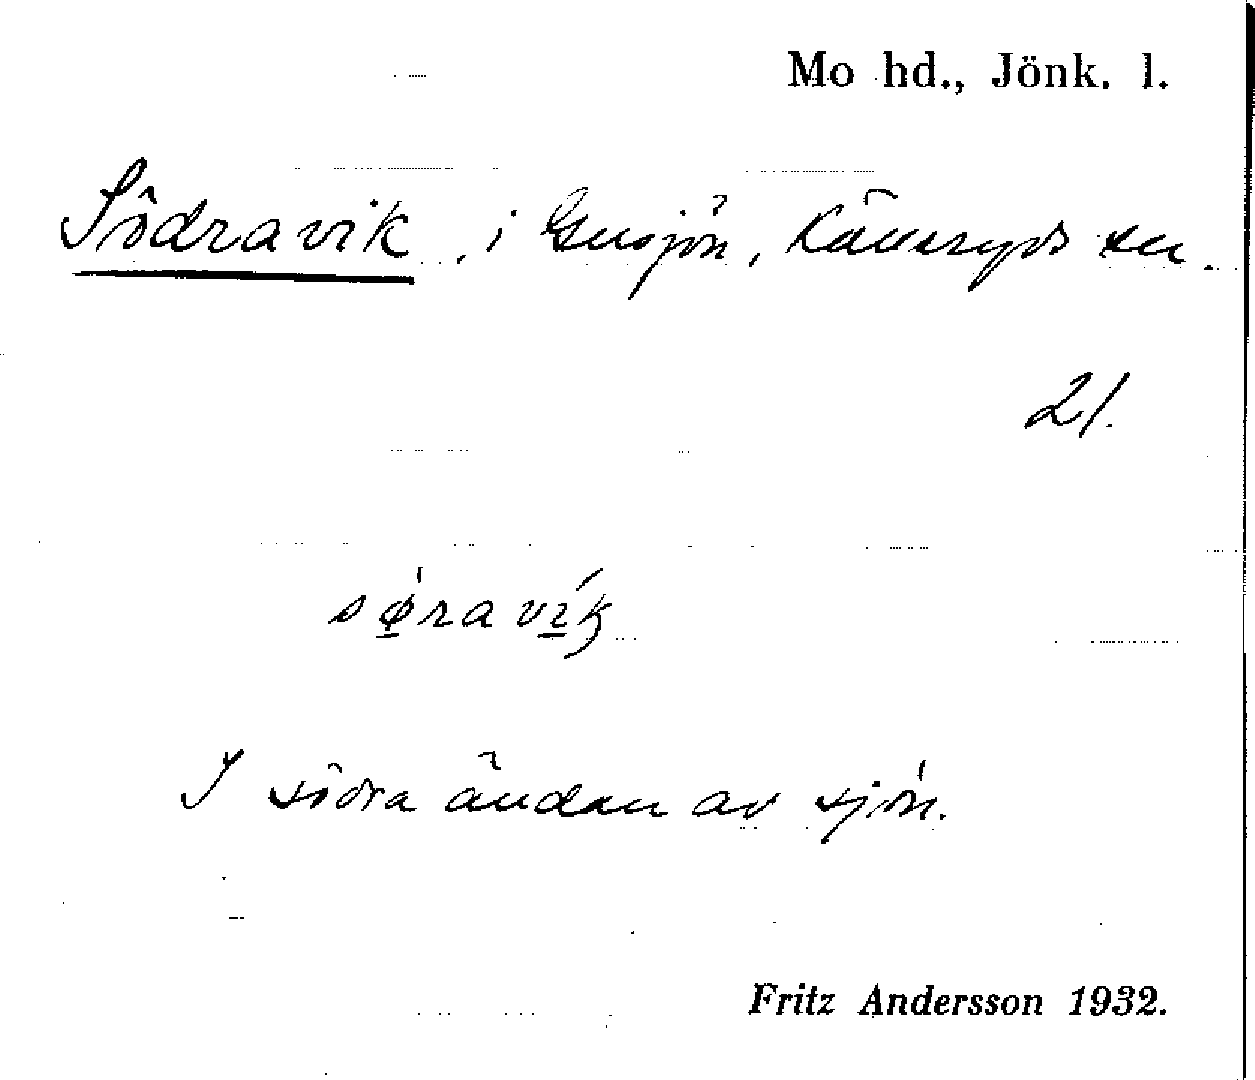 Mo hd., Jönk. l.
Södravik, i Gusjön, Källeryds sn.
21.
sǿravík
I södra ändan av sjön.
Fritz Andersson 1932.